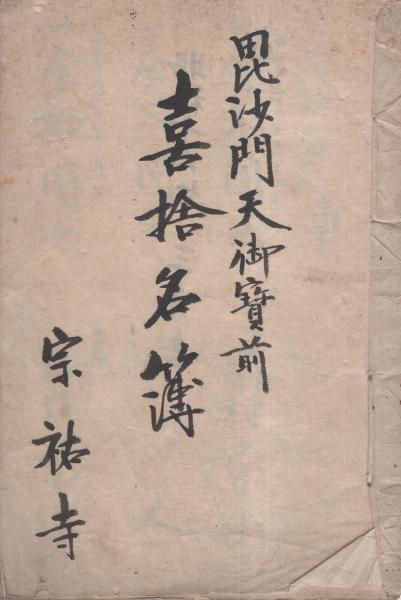 毘沙門天御寶前
喜捨名簿
宗祐寺